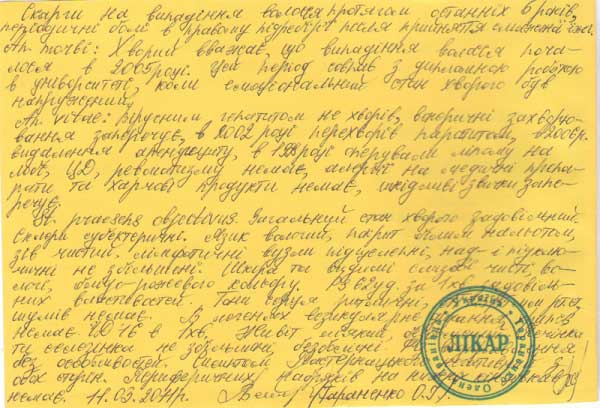 Скарги на випадіння волосся протягом останніх 6 років,
періодичні болі в правому підребер'ї після прийняття смаженої їжі.
An. morbi: Хворий вважає, що випадіння волосся поча-
лося в 2005 році. Цей період співпав з дипломною роботою
в університеті, коли емоціональний стан хворого був
напружений.
An. vitae: Вірусним гепатитом не хворів, венеричні захворю-
вання заперечує, в 2002 році перехворів паротитом,
видалення апендициту, в році оперували ліпому на
ЦД, ревматизму немає, алергії на медичні препа-
рати та харчові продукти немає, шкідливі звички запе-
речує.
St. praesens objectivus Загальний стан хворого задовільний.
Склери субіктеричні. Язик вологий, покрит білим нальотом,
зів чистий. Лімфатичні вузли підщелепні, над- і підклю-
чичні не збільшені. Шкіра та видимі слизові чисті, во-
логі, блідо-рожевого кольору. Ps 62 уд. за 1 хв задовіль-
них властивостей. Тони серця ритмічні,
шумів немає. В легенях везикулярне дихання
немає. ЧД 16 в 1 хв. Живіт м'який
та селезінка не збільшені, безболісні.
без особливостей. Симптом Пастернацького
обох сторін. Периферичних набряків на
немає. 11.03.2011р. Лікар Тараненко О.
ЛІКАР
Україна